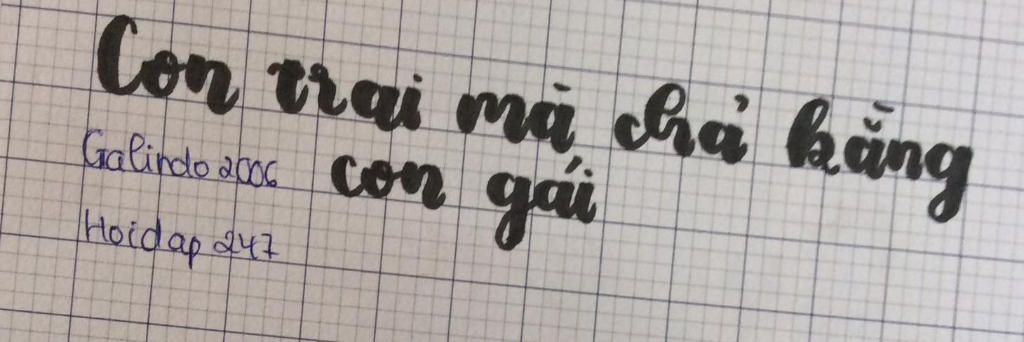 Con trai mà chả bằng
con gái
Galindo2006
Hoidap247